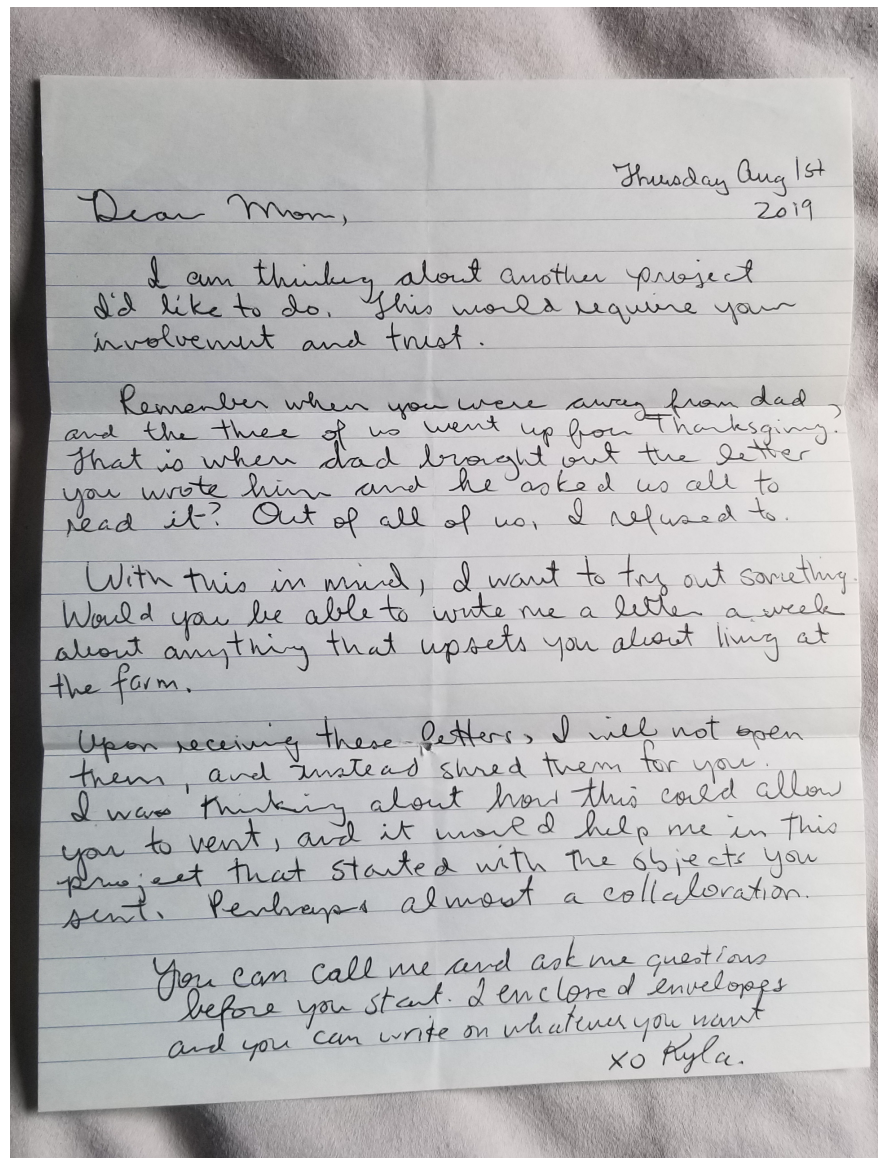 Thursday Aug 1st
2019
Dear Mom,
I am thinking about another project
I'd like to do. This would require your
involvement and trust.
Remember when you were away from dad
and the three of us went up for Thanksgiving?
That is when dad brought out the letter
you wrote him and he asked us all to
read it? Out of all of us, I refused to.
With this in mind, I want to try out something.
Would you be able to write me a letter a week
about anything that upsets you about living at
the farm.
Upon receiving these letters, I will not open
them, and instead shred them for you.
I was thinking about how this could allow
you to vent, and it would help me in this
project that started with the objects you
sent. Perhaps almost a collaboration.
You can call me and ask me questions
before you start. I enclosed envelopes
and you can write on whatever you want
xo Kyla.